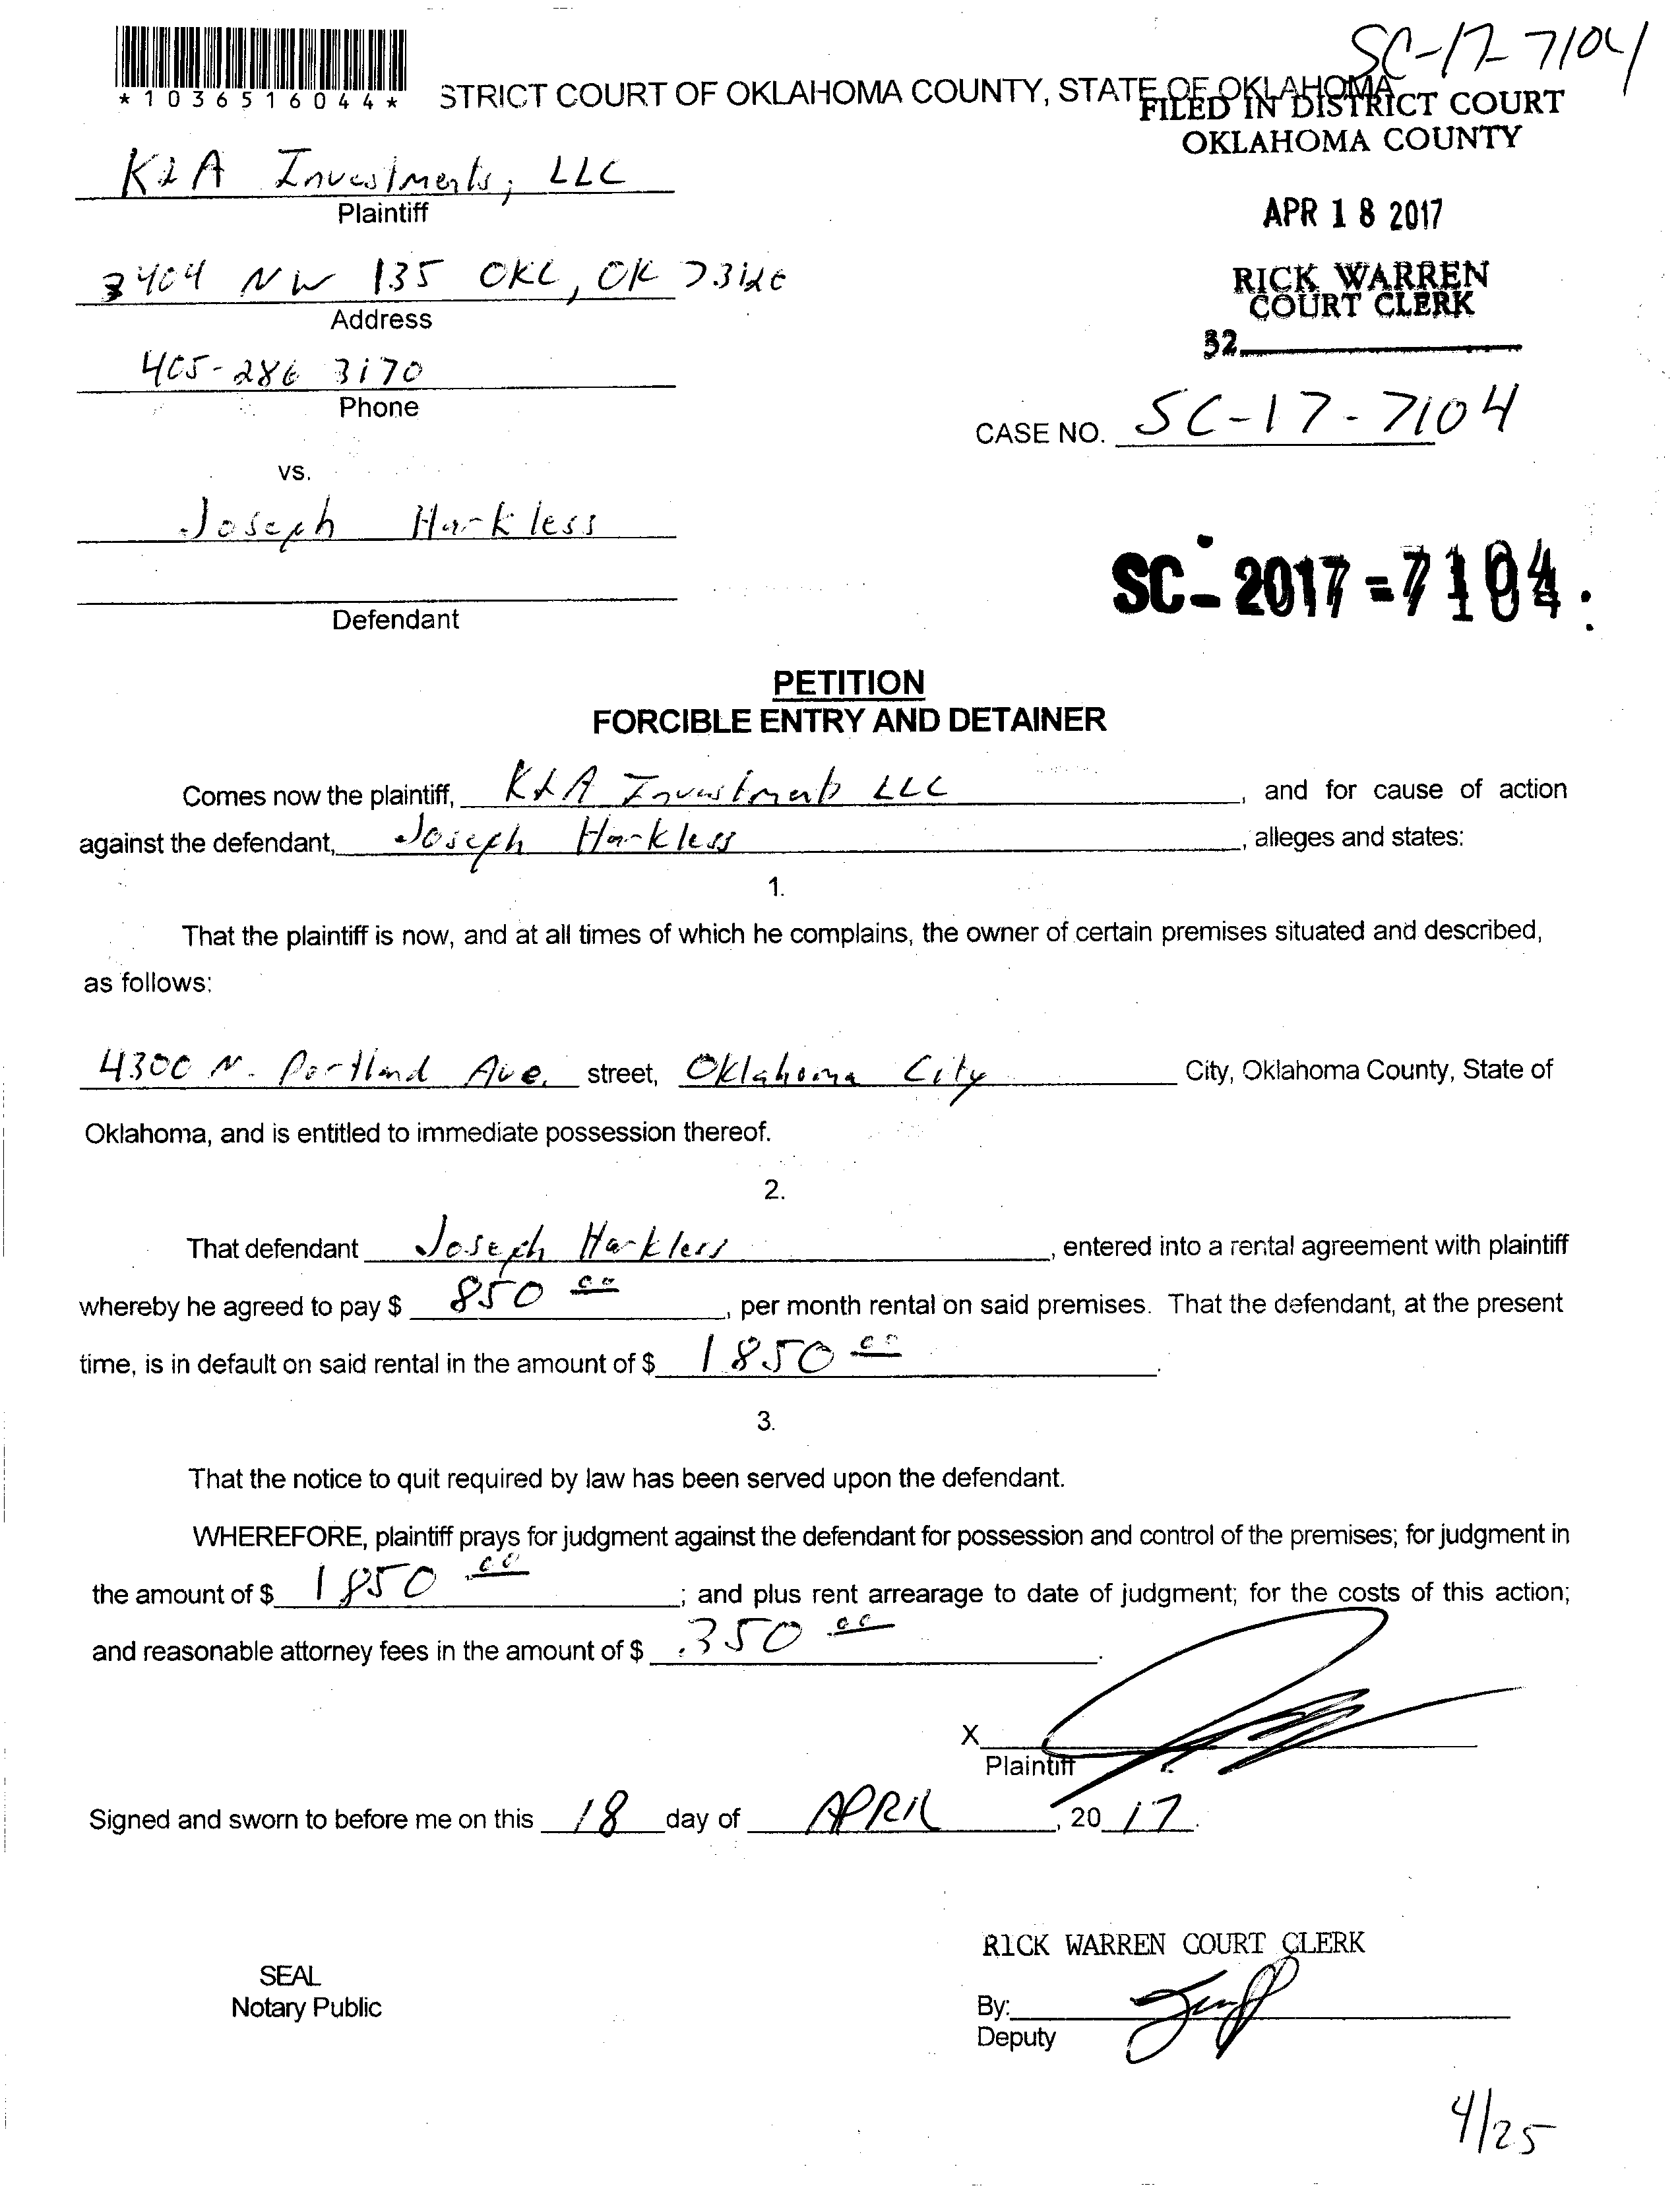 SC-17-7104
*1036516044*
STRICT COURT OF OKLAHOMA COUNTY, STATE OF OKLAHOMA
FILED IN DISTRICT COURT
OKLAHOMA COUNTY
K&A Investments, LLC
Plaintiff
APR 18 2017
3404 NW 135 OKC, OK 73120
Address
RICK WARREN
COURT CLERK
32
405-286 3170
Phone
CASE NO. SC-17-7104
vs.
Joseph Harkless
Defendant
SC-2017-7104
PETITION
FORCIBLE ENTRY AND DETAINER
Comes now the plaintiff, K&A Investments LLC, and for cause of action
against the defendant, Joseph Harkless, alleges and states:
1.
That the plaintiff is now, and at all times of which he complains, the owner of certain premises situated and described,
as follows:
4300 N. Portland Ave. street, Oklahoma City City, Oklahoma County, State of
Oklahoma, and is entitled to immediate possession thereof.
2.
That defendant Joseph Harkless, entered into a rental agreement with plaintiff
whereby he agreed to pay $ 850 00, per month rental on said premises. That the defendant, at the present
time, is in default on said rental in the amount of $ 1850 00.
3.
That the notice to quit required by law has been served upon the defendant.
WHEREFORE, plaintiff prays for judgment against the defendant for possession and control of the premises; for judgment in
the amount of $ 1850 00; and plus rent arrearage to date of judgment; for the costs of this action;
and reasonable attorney fees in the amount of $ 350 00.
X
Plaintiff
Signed and sworn to before me on this 18 day of APRIL, 2017.
RICK WARREN COURT CLERK
SEAL
Notary Public
By:
Deputy
4/25